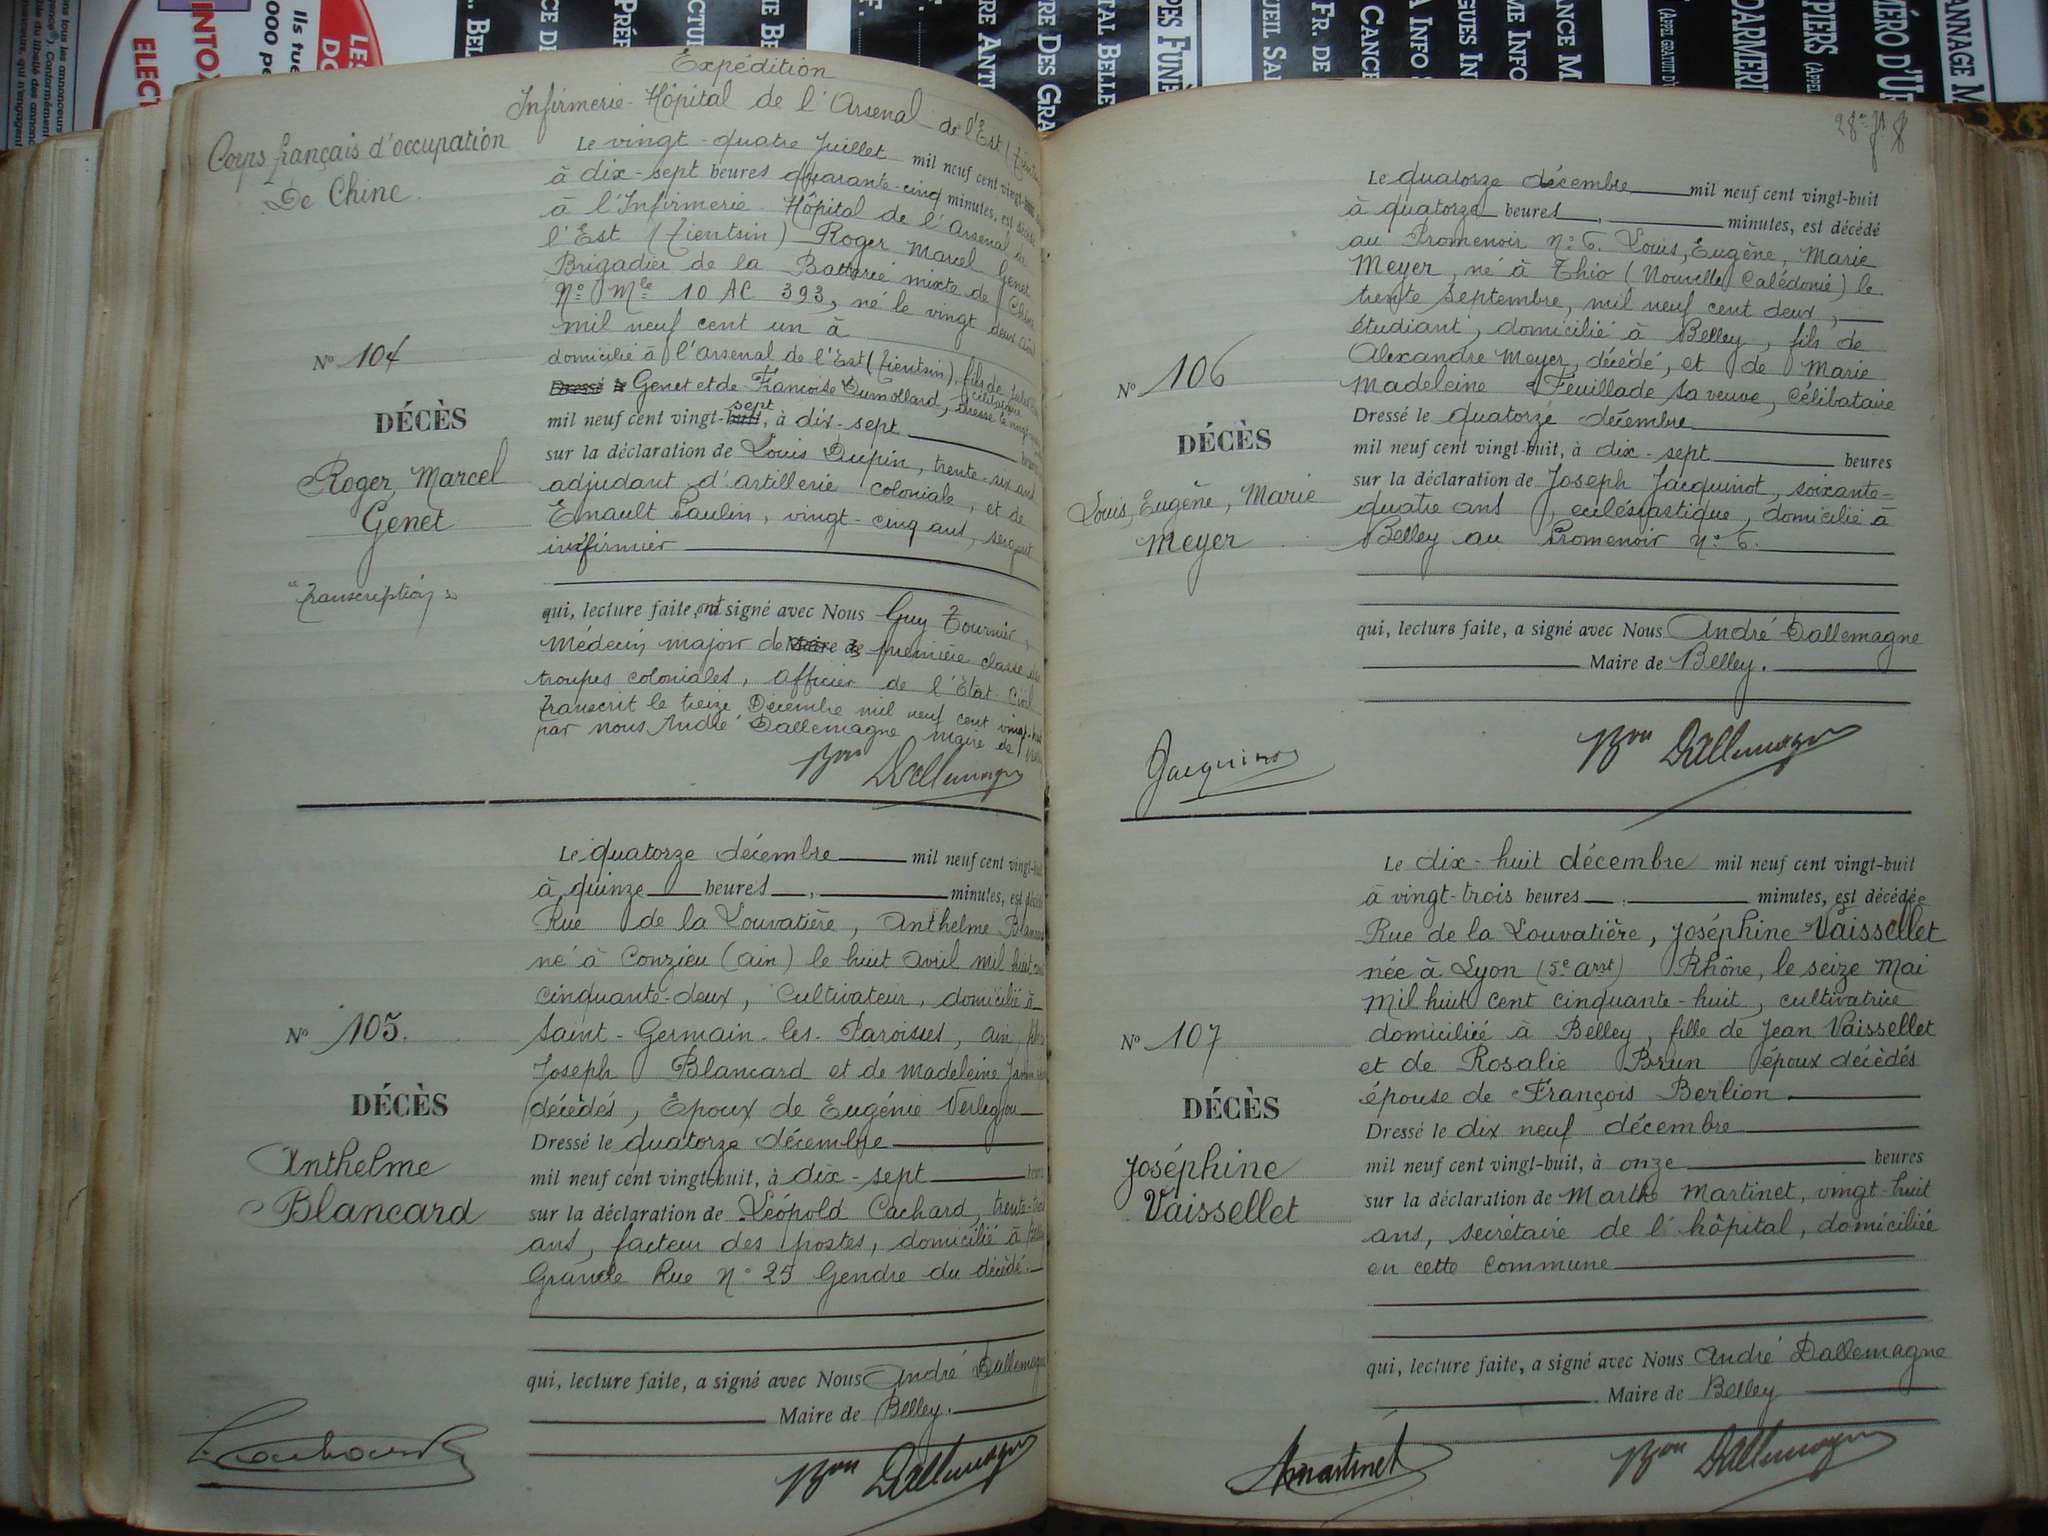 Expédition
Infirmerie-Hôpital de l'Arsenal de l'Est
Corps français d'occupation
De Chine.
Le vingt-quatre Juillet mil neuf cent vingt-
à dix-sept heures quarante-cinq minutes, est décédé
à l'Infirmerie-Hôpital de l'Arsenal de
l'Est (Tientsin) Roger Marcel Genet
Brigadier de la Batterie mixte de Chine
No Mle 10 AC 393, né le vingt deux
mil neuf cent un à
No 104
domicilié à l'Arsenal de l'Est (Tientsin), fils de
Dressé le Genet et de Françoise Dumollard, célibataire, Dressé le vingt-
DÉCÈS
mil neuf cent vingt-huit sept, à dix-sept
sur la déclaration de Louis Dupin, trente-six ans
Roger Marcel
Genet
adjudant d'artillerie coloniale, et de
Enault Paulin, vingt-cinq ans, sergent
infirmier
"Transcription"
qui, lecture faite, ont signé avec Nous Guy Tournier,
Médecin major de Maire de première classe des
troupes coloniales, officier de l'Etat-Civil
Transcrit le treize Décembre mil neuf cent vingt-huit
par nous André Dallemagne maire de
Bon Dallemagne
Le quatorze décembre mil neuf cent vingt-huit
à quinze heures, minutes, est décédé
Rue de la Louvatière, Anthelme Blancard
né à Conzieu (ain) le huit avril mil huit cent
cinquante-deux, Cultivateur, domicilié à
No 105.
Saint-Germain-les-Paroisses, ain, fils
Joseph Blancard et de Madeleine
décédés, Epoux de Eugénie Verlegjou
DÉCÈS
Dressé le quatorze décembre
Anthelme
Blancard
mil neuf cent vingt-huit, à dix-sept
sur la déclaration de Léopold Cachard, trente-
ans, facteur des postes, domicilié à Belley
Grande Rue No 25 Gendre du décédé.
qui, lecture faite, a signé avec Nous André Dallemagne
Maire de Belley.
Bon Dallemagne
Le quatorze décembre mil neuf cent vingt-huit
à quatorze heures, minutes, est décédé
au Promenoir No 6. Louis, Eugène, Marie
Meyer, né à Thio (Nouvelle Calédonie) le
trente Septembre, mil neuf cent deux,
étudiant, domicilié à Belley, fils de
No 106
Alexandre Meyer, décédé, et de Marie
Madeleine Feuillade sa veuve, Célibataire
DÉCÈS
Dressé le quatorze décembre
mil neuf cent vingt-huit, à dix-sept heures
Louis, Eugène, Marie
Meyer
sur la déclaration de Joseph Jacquinot, soixante-
quatre ans, ecclésiastique, domicilié à
Belley au Promenoir No 6.
qui, lecture faite, a signé avec Nous André Dallemagne
Maire de Belley.
Jacquinot
Bon Dallemagne
Le dix-huit décembre mil neuf cent vingt-huit
à vingt-trois heures, minutes, est décédée
Rue de la Louvatière, Joséphine Vaissellet
née à Lyon (5e arrt) Rhône, le seize Mai
Mil huit cent cinquante-huit, cultivatrice
No 107
domiciliée à Belley, fille de Jean Vaissellet
et de Rosalie Brun époux décédés
DÉCÈS
épouse de François Berlion
Dressé le dix neuf décembre
Joséphine
Vaissellet
mil neuf cent vingt-huit, à onze heures
sur la déclaration de Marthe Martinet, vingt-huit
ans, secrétaire de l'hôpital, domiciliée
en cette Commune
qui, lecture faite, a signé avec Nous André Dallemagne
Maire de Belley
Martinet
Bon Dallemagne